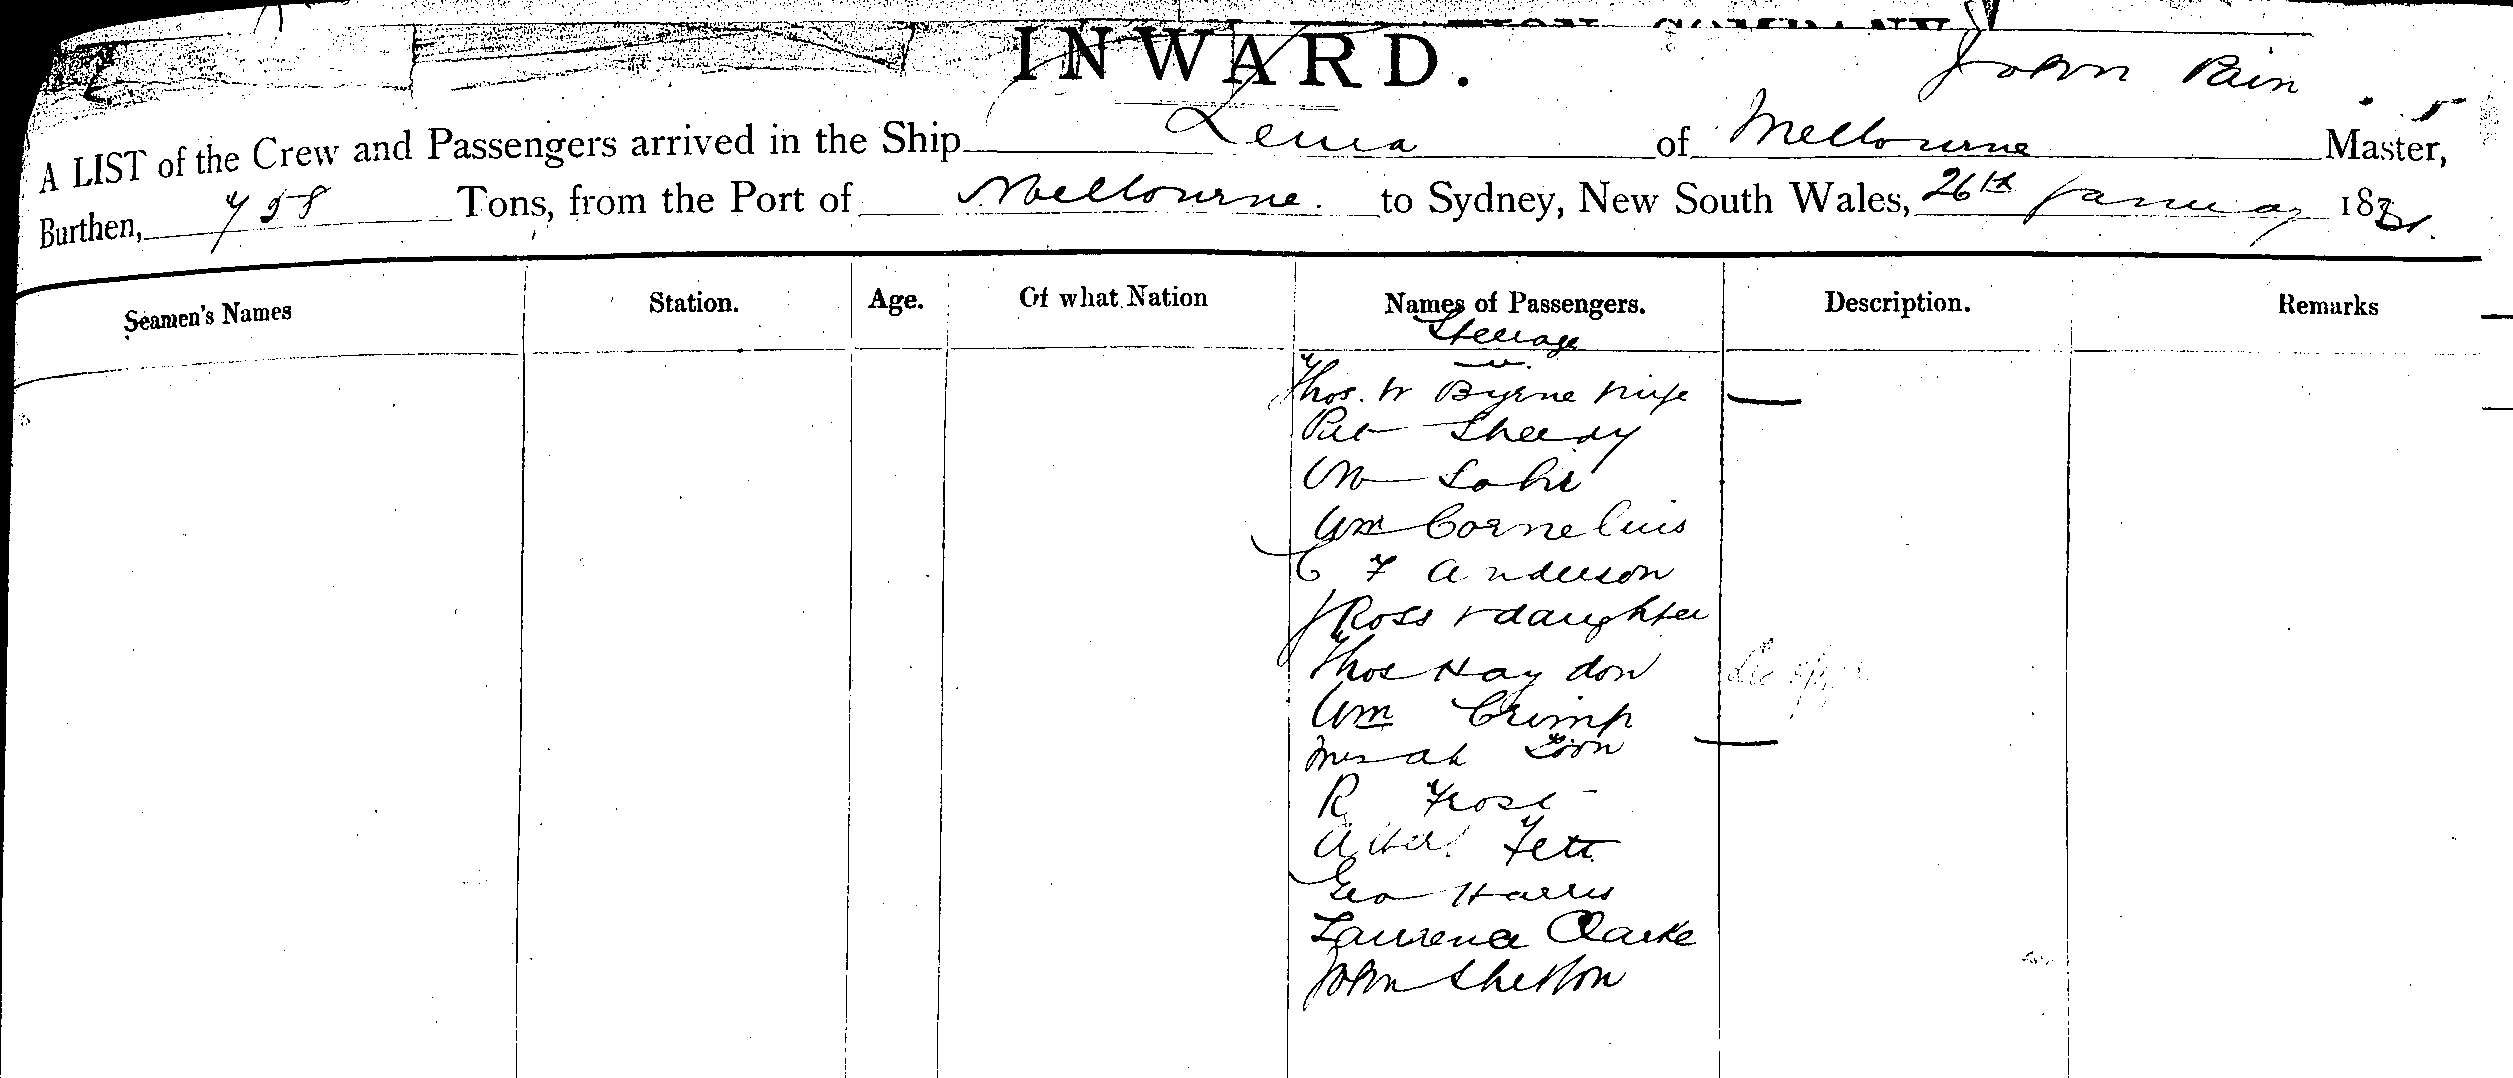 INWARD.
John Pain
A LIST of the Crew and Passengers arrived in the Ship of Melbourne Master,
Burthen, 758 Tons, from the Port of Melbourne. to Sydney, New South Wales, 26th January 188
Seamen's Names Station. Age. Of what Nation Names of Passengers. Description. Remarks
Steerage
Thos. W Byrne wife
Pat Sheedy
Wm Cornelius
C F Anderson
J Ross & daughter
Thos Haydon
Wm Crimp
R Frost
Albert Fett
Geo Harris
Laurence Clarke
John Shelton